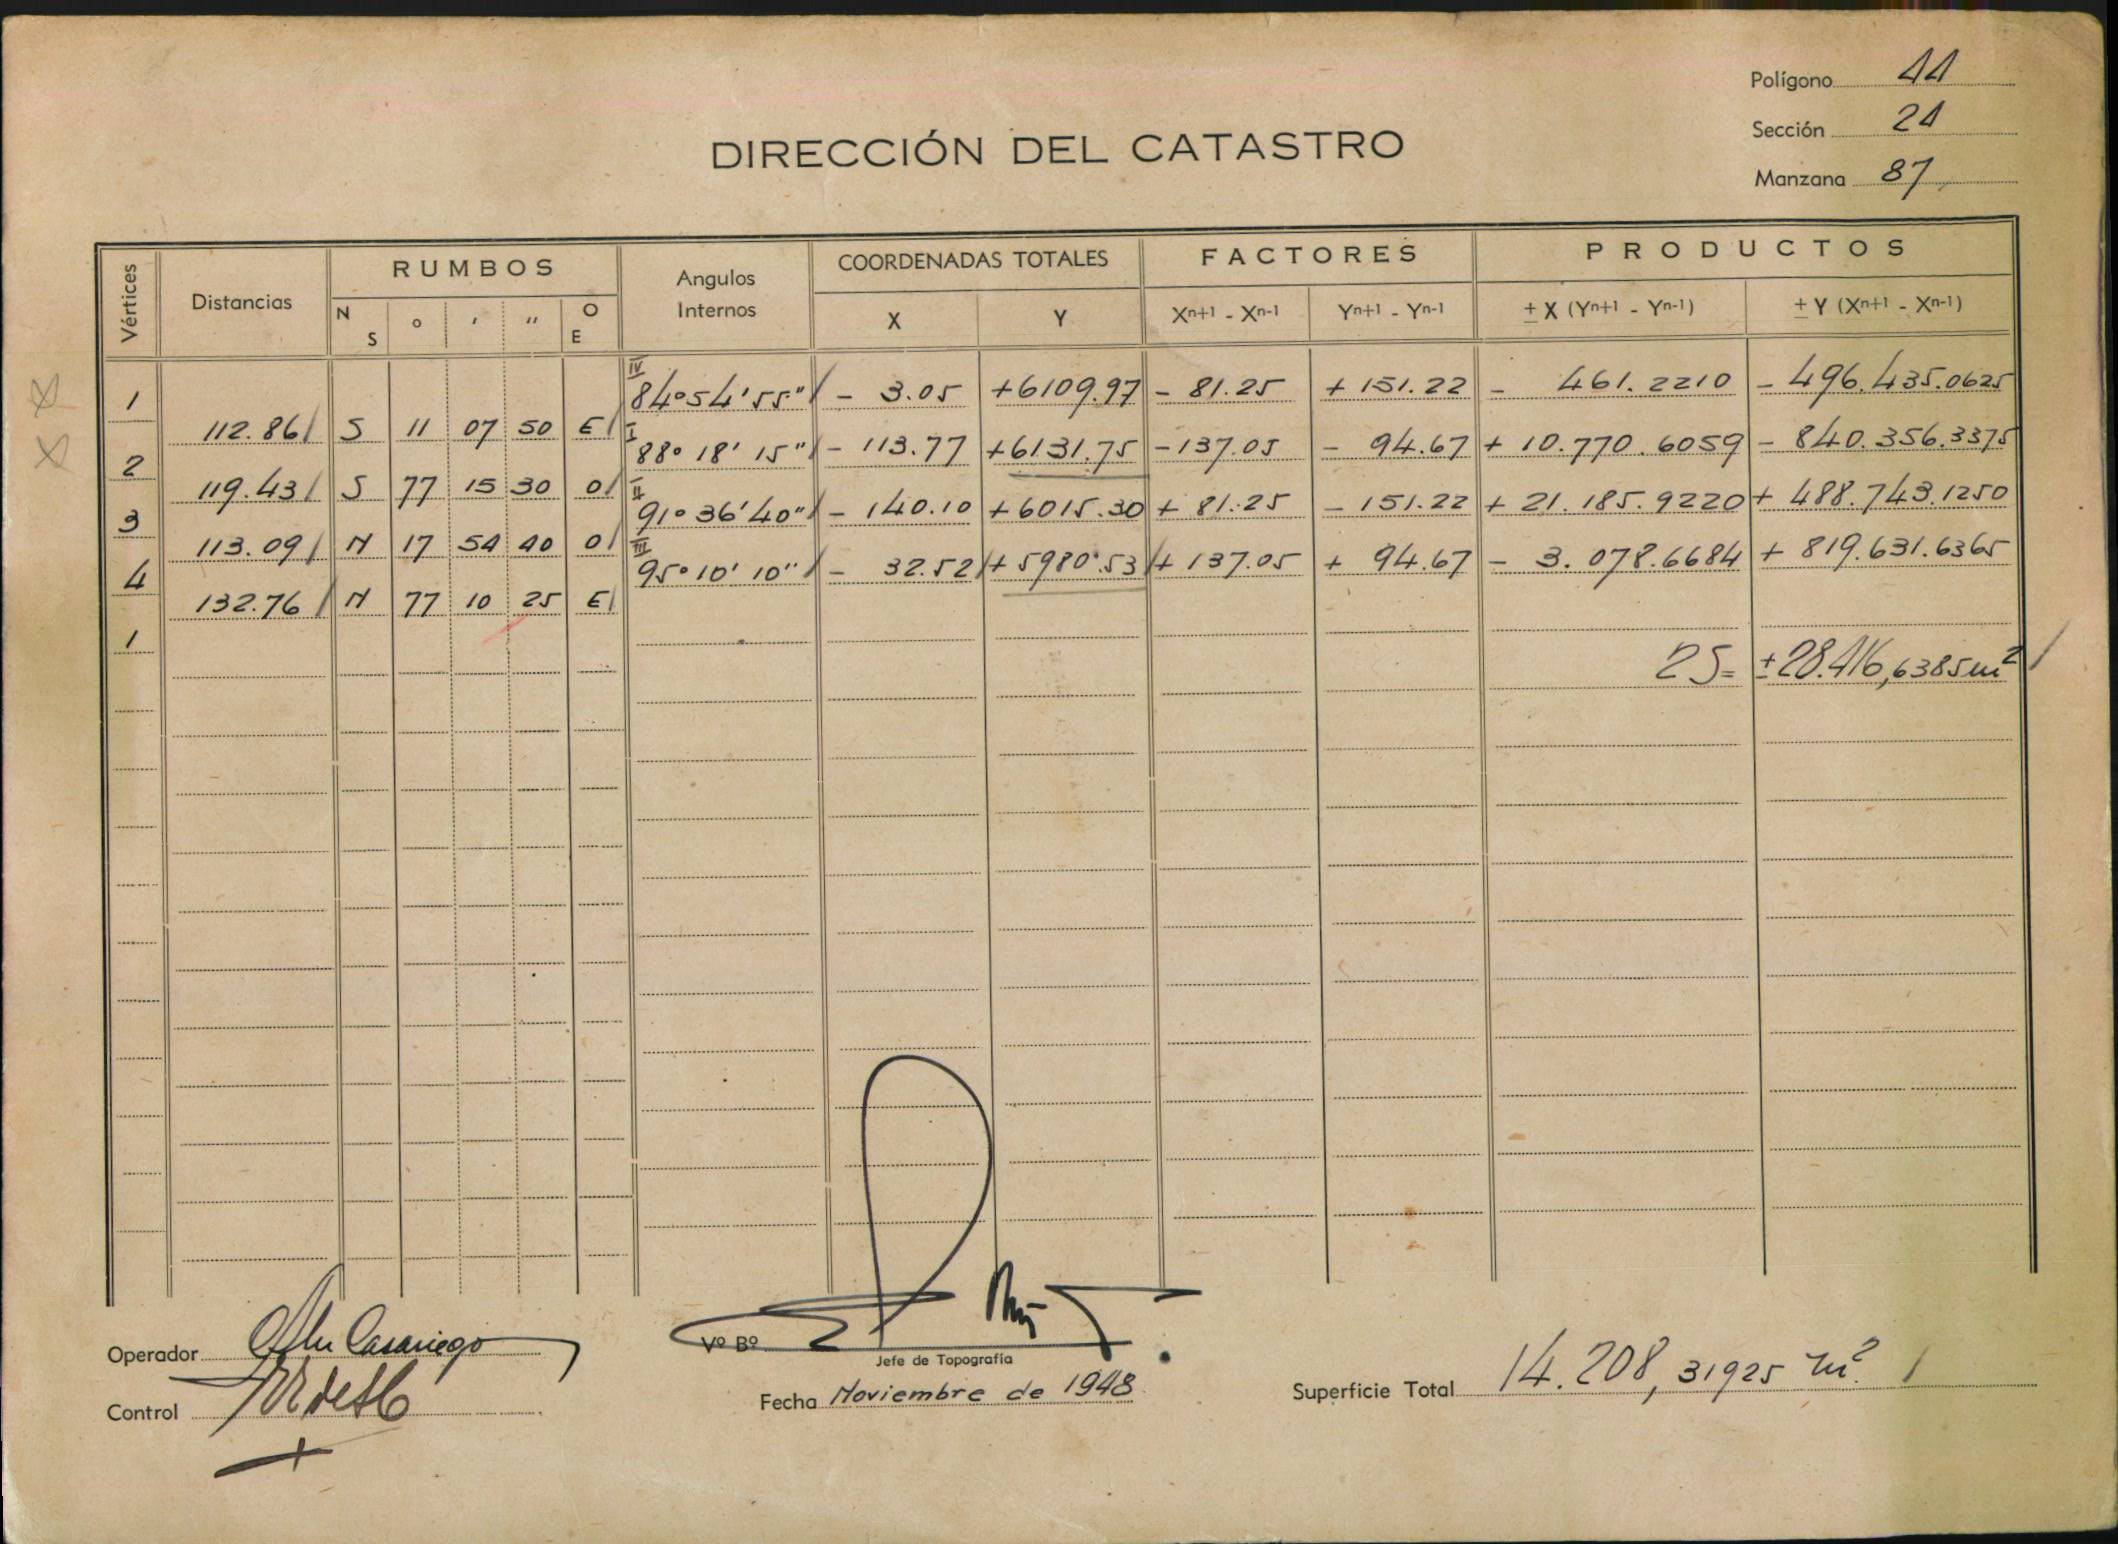 Polígono 44
Sección 24
Manzana 87
DIRECCIÓN DEL CATASTRO
Vértices Distancias RUMBOS Angulos Internos COORDENADAS TOTALES FACTORES PRODUCTOS
N S ° ' " O E X Y Xn+1 - Xn-1 Yn+1 - Yn-1 ± X (Yn+1 - Yn-1) ± Y (Xn+1 - Xn-1)
1 IV 84° 54' 55" - 3.05 +6109.97 - 81.25 + 151.22 - 461.2210 - 496.435.0625
112.86 S 11 07 50 E
2 I 88° 18' 15" - 113.77 +6131.75 - 137.05 - 94.67 + 10.770.6059 - 840.356.3375
119.43 S 77 15 30 O
3 II 91° 36' 40" - 140.10 + 6015.30 + 81.25 - 151.22 + 21.185.9220 + 488.743.1250
113.09 N 17 54 40 O
4 III 95° 10' 10" - 32.52 + 5980.53 + 137.05 + 94.67 - 3.078.6684 + 819.631.6365
132.76 N 77 10 25 E
1
2S= ±28.416,6385 m2
Operador Casariego
Control
Vº Bº
Jefe de Topografía
Fecha Noviembre de 1948
Superficie Total 14.208,31925 m2.